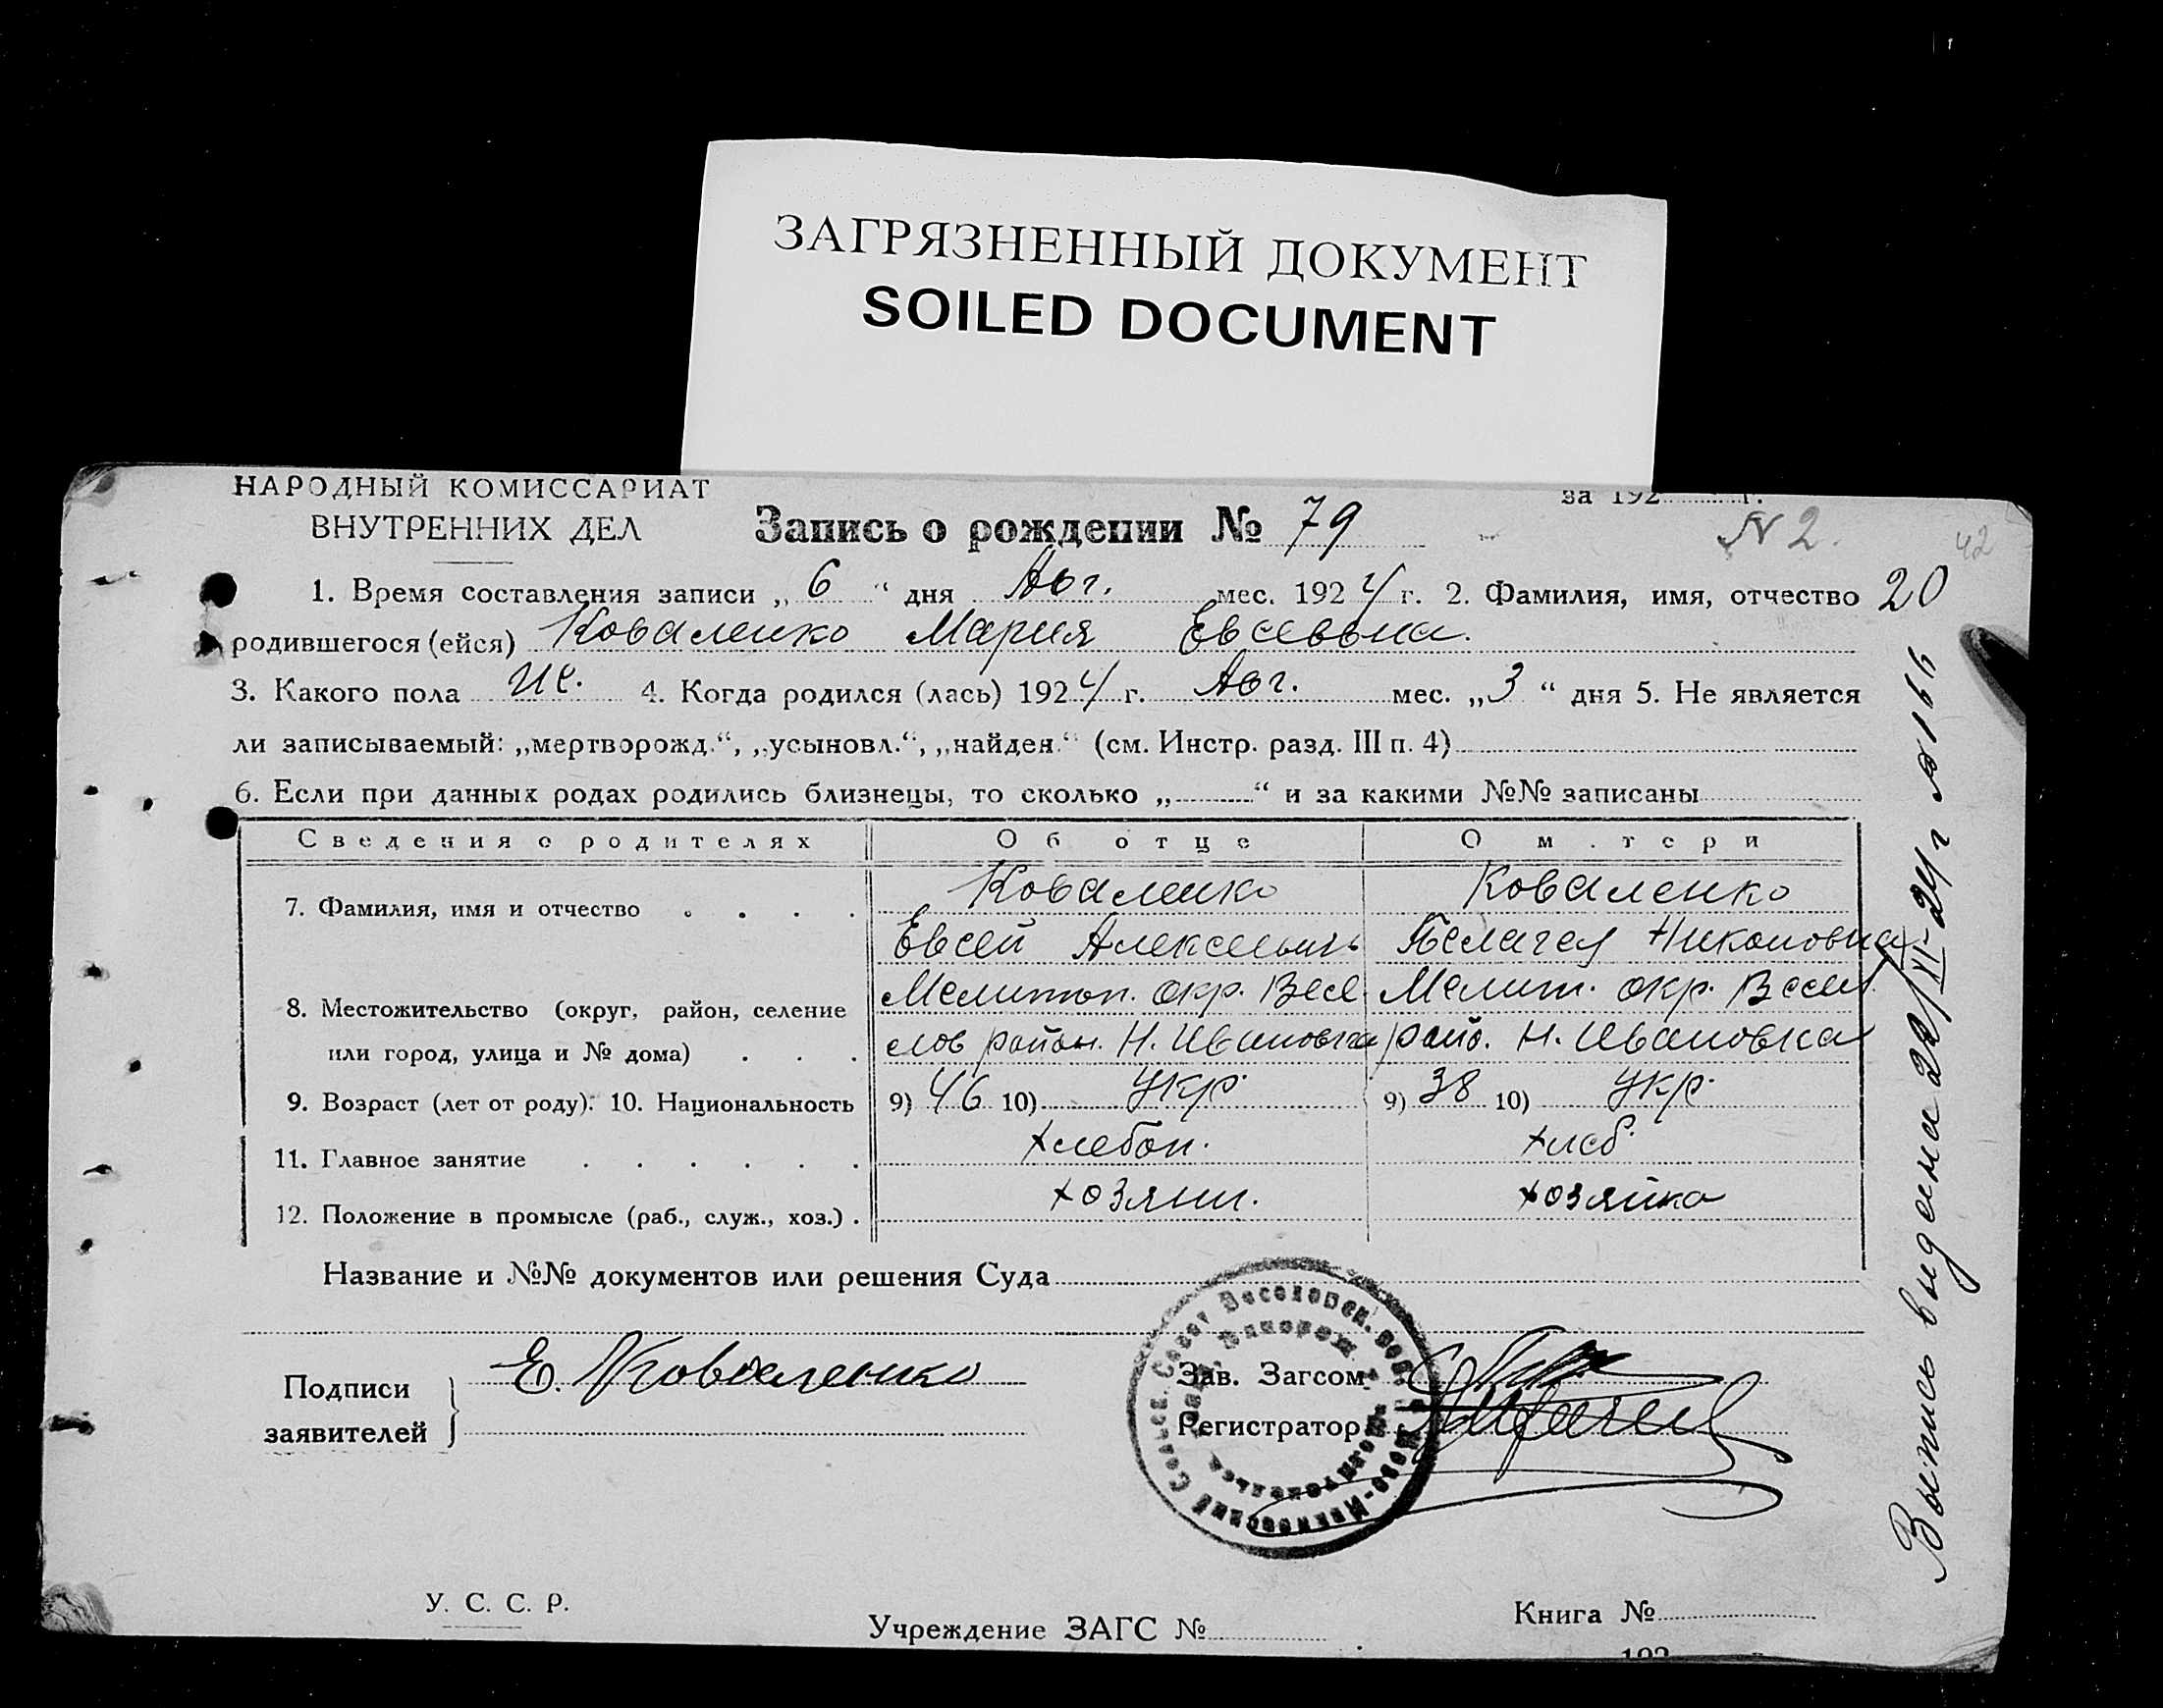 ЗАГРЯЗНЕННЫЙ ДОКУМЕНТ
SOILED DOCUMENT
НАРОДНЫЙ КОМИССАРИАТ
ВНУТРЕННИХ ДЕЛ
за 192 г.
Запись о рождении № 79
N 2.
42
1. Время составления записи „ 6 “ дня Авг. мес. 1924 г. 2. Фамилия, имя, отчество 20
родившегося (ейся) Коваленко Мария Евсевьна.
3. Какого пола же. 4. Когда родился (лась) 1924 г. Авг. мес. „3“ дня 5. Не является
ли записываемый: „мертворожд.“, „усыновл.“, „найден.“ (см. Инстр. разд. III п. 4)
6. Если при данных родах родились близнецы, то сколько „ “ и за какими №№ записаны
Сведения о родителях Об отце О м.тери
7. Фамилия, имя и отчество Коваленко Коваленко
Евсей Алексеевичь Пелагея Никоновна
8. Местожительство (округ, район, селение Мелитоп. окр. Весе Мелит. окр. Весел.
или город, улица и № дома) лов район. Н. Ивановка райо. Н. Ивановка
9. Возраст (лет от роду). 10. Национальность 9) 46 10) Укр. 9) 38 10) Укр.
11. Главное занятие хлебоп. хлеб.
12. Положение в промысле (раб., служ., хоз.) хозяин. хозяйка
Название и №№ документов или решения Суда
Подписи Е. Коваленко Зав. Загсом
заявителей Регистратор
У. С. С. Р.
Учреждение ЗАГС №
Книга №
192
Выпись выдана 22/XI-24 г № 166